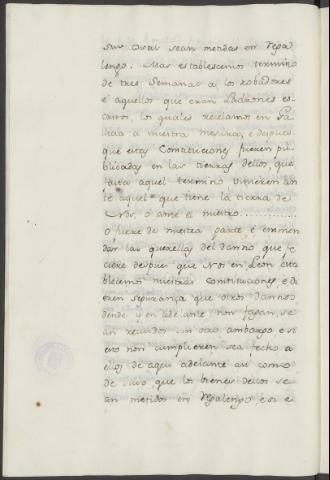 sus cosas sean metidas en rega
lengo. Mas establescemos termino
de tres Semanas a los robadores
e aquellos que eran Ladrones es
critos, los quales recelamos en
a nuestra mesura, e despues
que estas Constituciones fueren pu
blicadas en las tierras dellos, que
fasta aquel termino vinieren an
te aquel que tiene la tierra de
Nos, o ante el nuestro ............
o fuere de nuestra parte e emmen
dar las querellas del danno que fe
cieren despues que Nos en Leon esta
blecemos nuestras constituciones, e di
eren segurança que otros dannos
dende y en adelante non fagan, se
an recebidos sin otro embargo e si
esto non cumplieren sea fecho a
ellos de aqui adelante asi como
de suso, que los bienes dellos se
an metidos en regalengo e si e